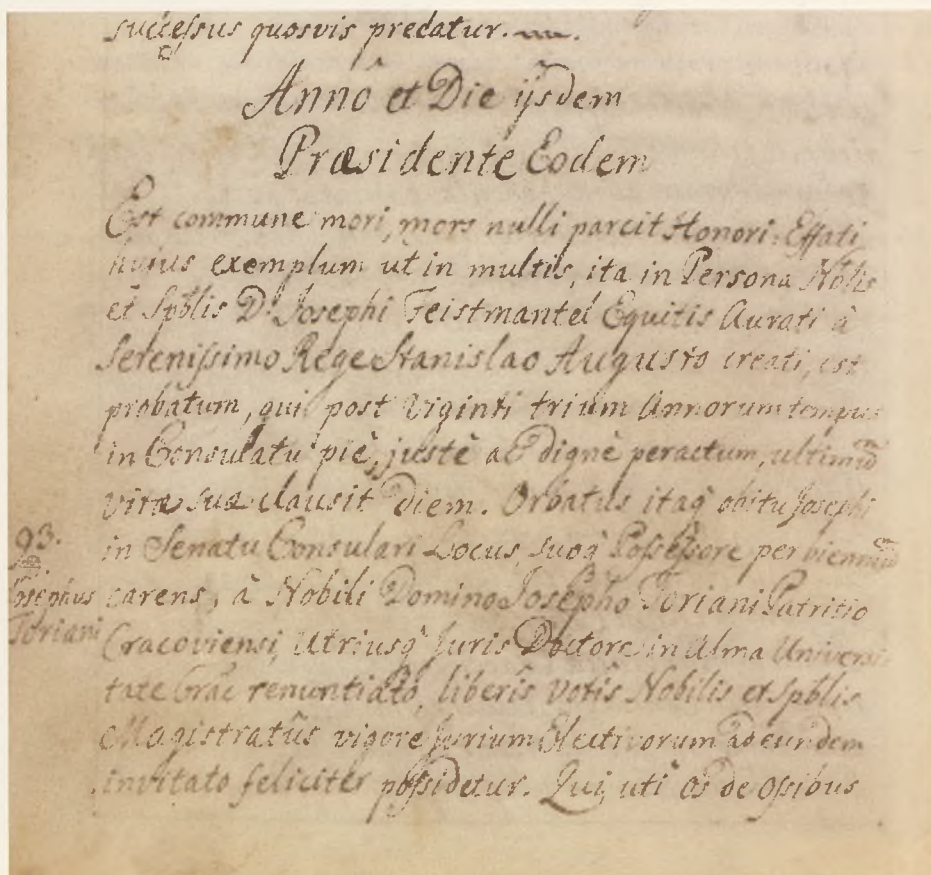 succeſsus quosvis precatur.
Annô et Die ijsdem
Præsidente Eodem
Est commune mori, mors nulli parcit Honori. Effati
hujus exemplum ut in multis, ita in Persona Nôlis
et Spblis D. Josephi Feistmantel Equitis Aurati à
Sereniſsimo Rege Stanislao Augusto creati, est
probatum, qui post Viginti trium Annorum tempus
in Consulatu piè, justè ac dignè peractum, ultimū
vitæ suæ clausit diem. Orbatus itaq obitu Josephi
93. in Senatu Consulari Locus, suoq Poſseſsore per bienniū
Josephus carens, à Nobili Domino Josepho Toriani Patritio
Toriani Cracoviensi, Utriusq Juris Doctore in Alma Universi
tate Crac renuntiato, liberis votis Nobilis et Spblis
Magistratûs vigore Electivorum ad eundem
invitato feliciter poſsidetur. Qui, uti Os de Oſsibus